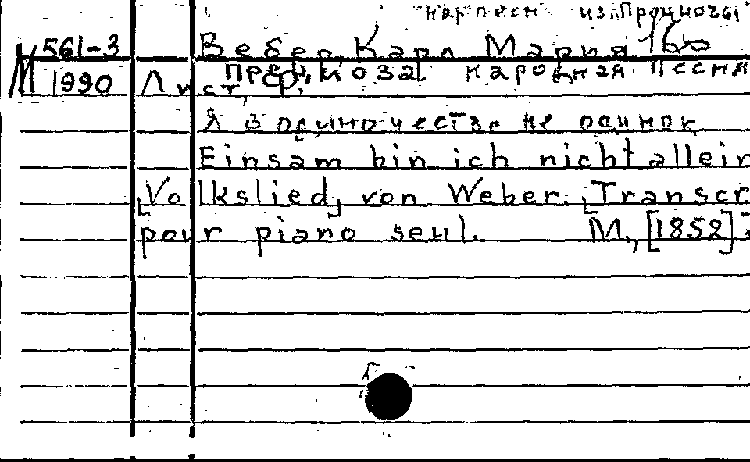 "нар песн" из "Прециозы"
М 561-3 Вебер, Карл Мария
1990 Прециоза народная песня
Лист, Ф.
Я в одиночестве не одинок
Einsam bin ich nicht allein
[Volkslied] von Weber. [Transcr
pour piano seul. M., [1852]